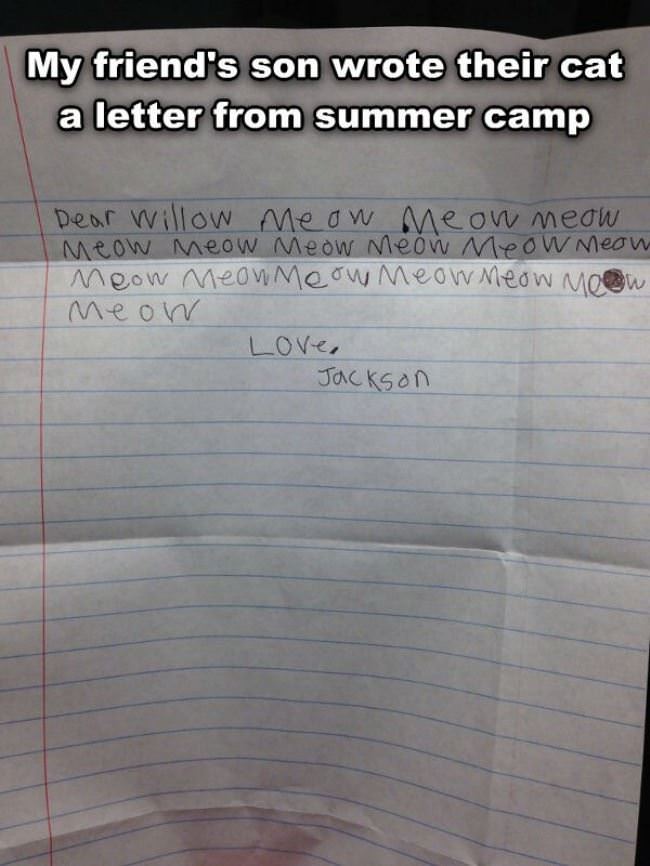 My friend's son wrote their cat
a letter from summer camp
Dear Willow Meow Meow meow
Meow Meow Meow Meow Meow Meow
Meow Meow Meow Meow Meow Meow
Meow
Love,
Jackson